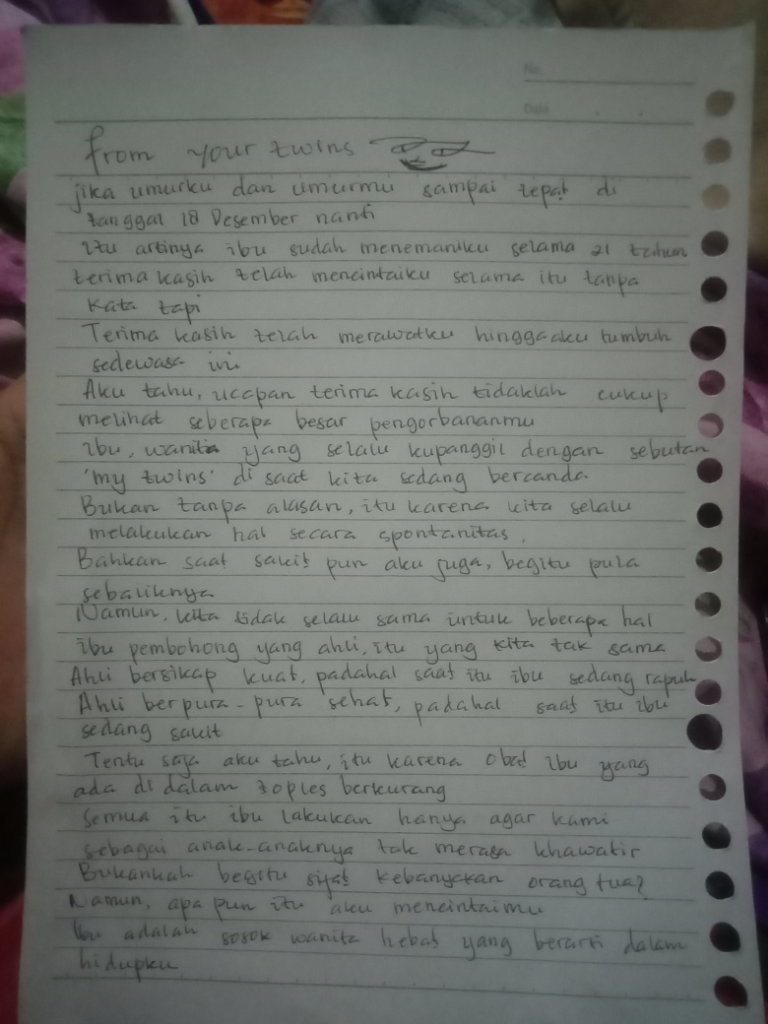 No.
Date
from your twins
jika umurku dan umurmu sampai tepat di
tanggal 18 Desember nanti
itu artinya ibu sudah menemaniku selama 21 tahun
terima kasih telah mencintaiku selama itu tanpa
kata tapi
Terima kasih telah merawatku hingga aku tumbuh
sedewasa ini.
Aku tahu, ucapan terima kasih tidaklah cukup
melihat seberapa besar pengorbananmu
ibu, wanita yang selalu kupanggil dengan sebutan
'my twins' di saat kita sedang bercanda.
Bukan tanpa alasan, itu karena kita selalu
melakukan hal secara spontanitas,
Bahkan saat sakit pun aku juga, begitu pula
sebaliknya
Namun, kita tidak selalu sama untuk beberapa hal
ibu pembohong yang ahli, itu yang kita tak sama
Ahli bersikap kuat, padahal saat itu ibu sedang rapuh
Ahli berpura-pura sehat, padahal saat itu ibu
sedang sakit
Tentu saja aku tahu, itu karena obat ibu yang
ada di dalam toples berkurang
Semua itu ibu lakukan hanya agar kami
sebagai anak-anaknya tak merasa khawatir
Bukankah begitu sifat kebanyakan orang tua?
Namun, apa pun itu aku mencintaimu
Ibu adalah sosok wanita hebat yang berarti dalam
hidupku